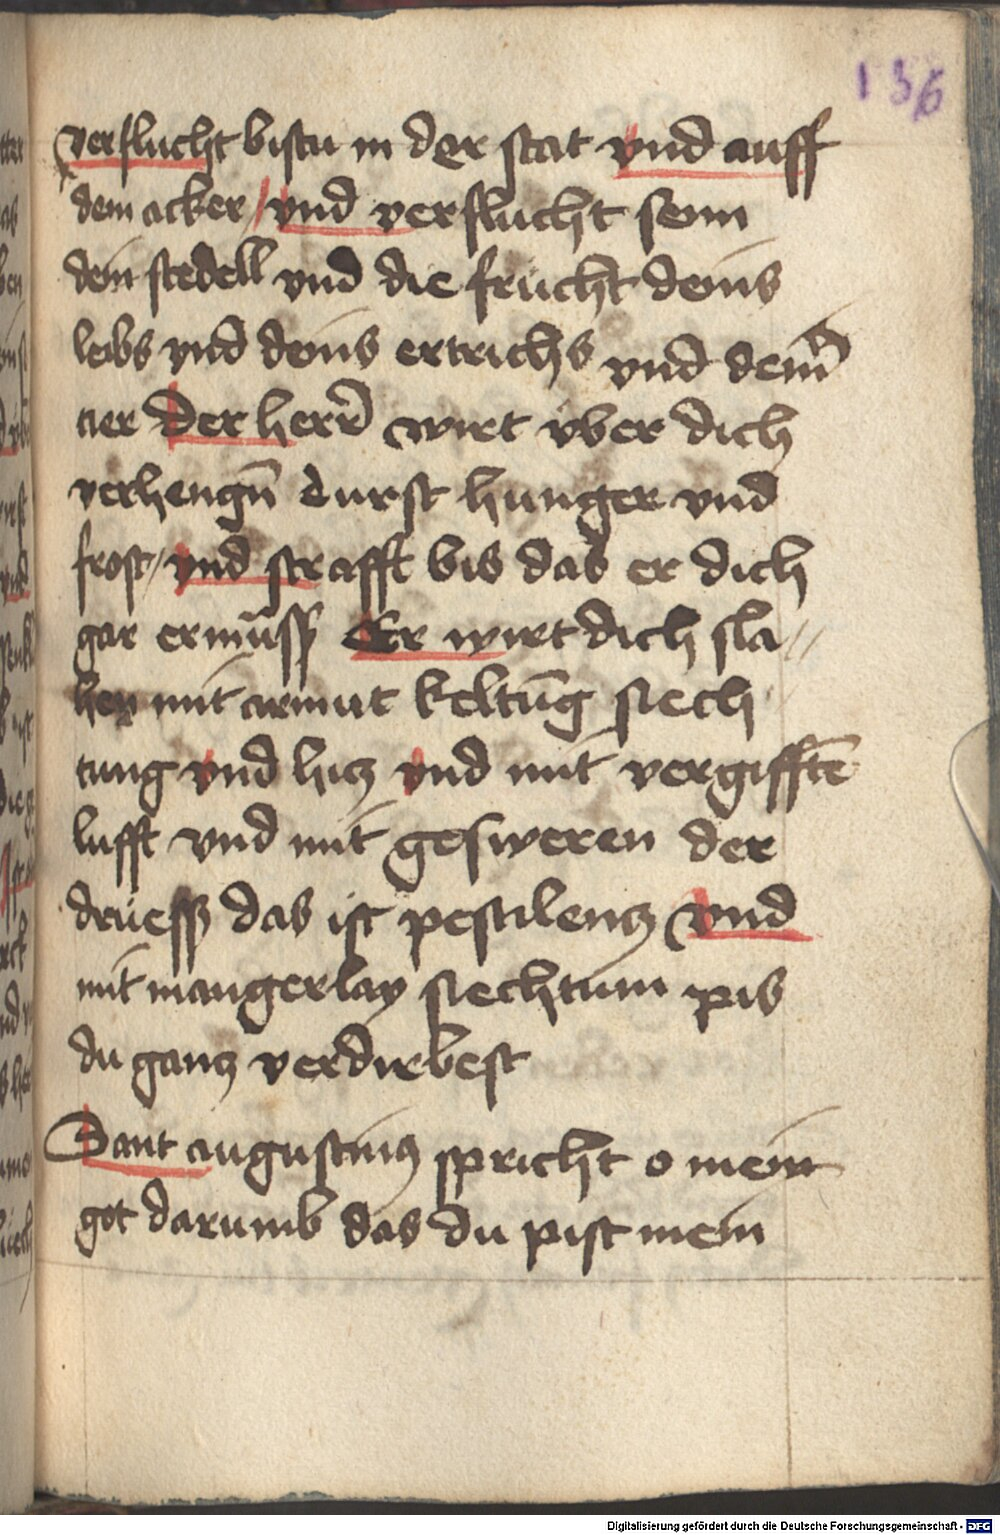 136
verflucht bistu in der stat vnd auff
dem acker / vnd verflucht seÿn
dein stedell vnd die frucht deins
leibs vnd deins ertrichs vnd deinr̃
tier Der herr̃ wirt vber dich
verhengñ durst hunger vnd
frost / vnd strafft bis das er dich
gar ermüssß Er wirt dich sla//
hen mit armut keltūg siech
tung vnd hicz vnd mit vergifftē
lufft vnd mit gesweren der
druessz das ist pestilencz vnd
mit mangerlay siechtum pis
du gancz verdirbest
Sant augustinus spricht o mein
got darumb das du pist mein
Digitalisierung gefördert durch die Deutsche Forschungsgemeinschaft - DFG